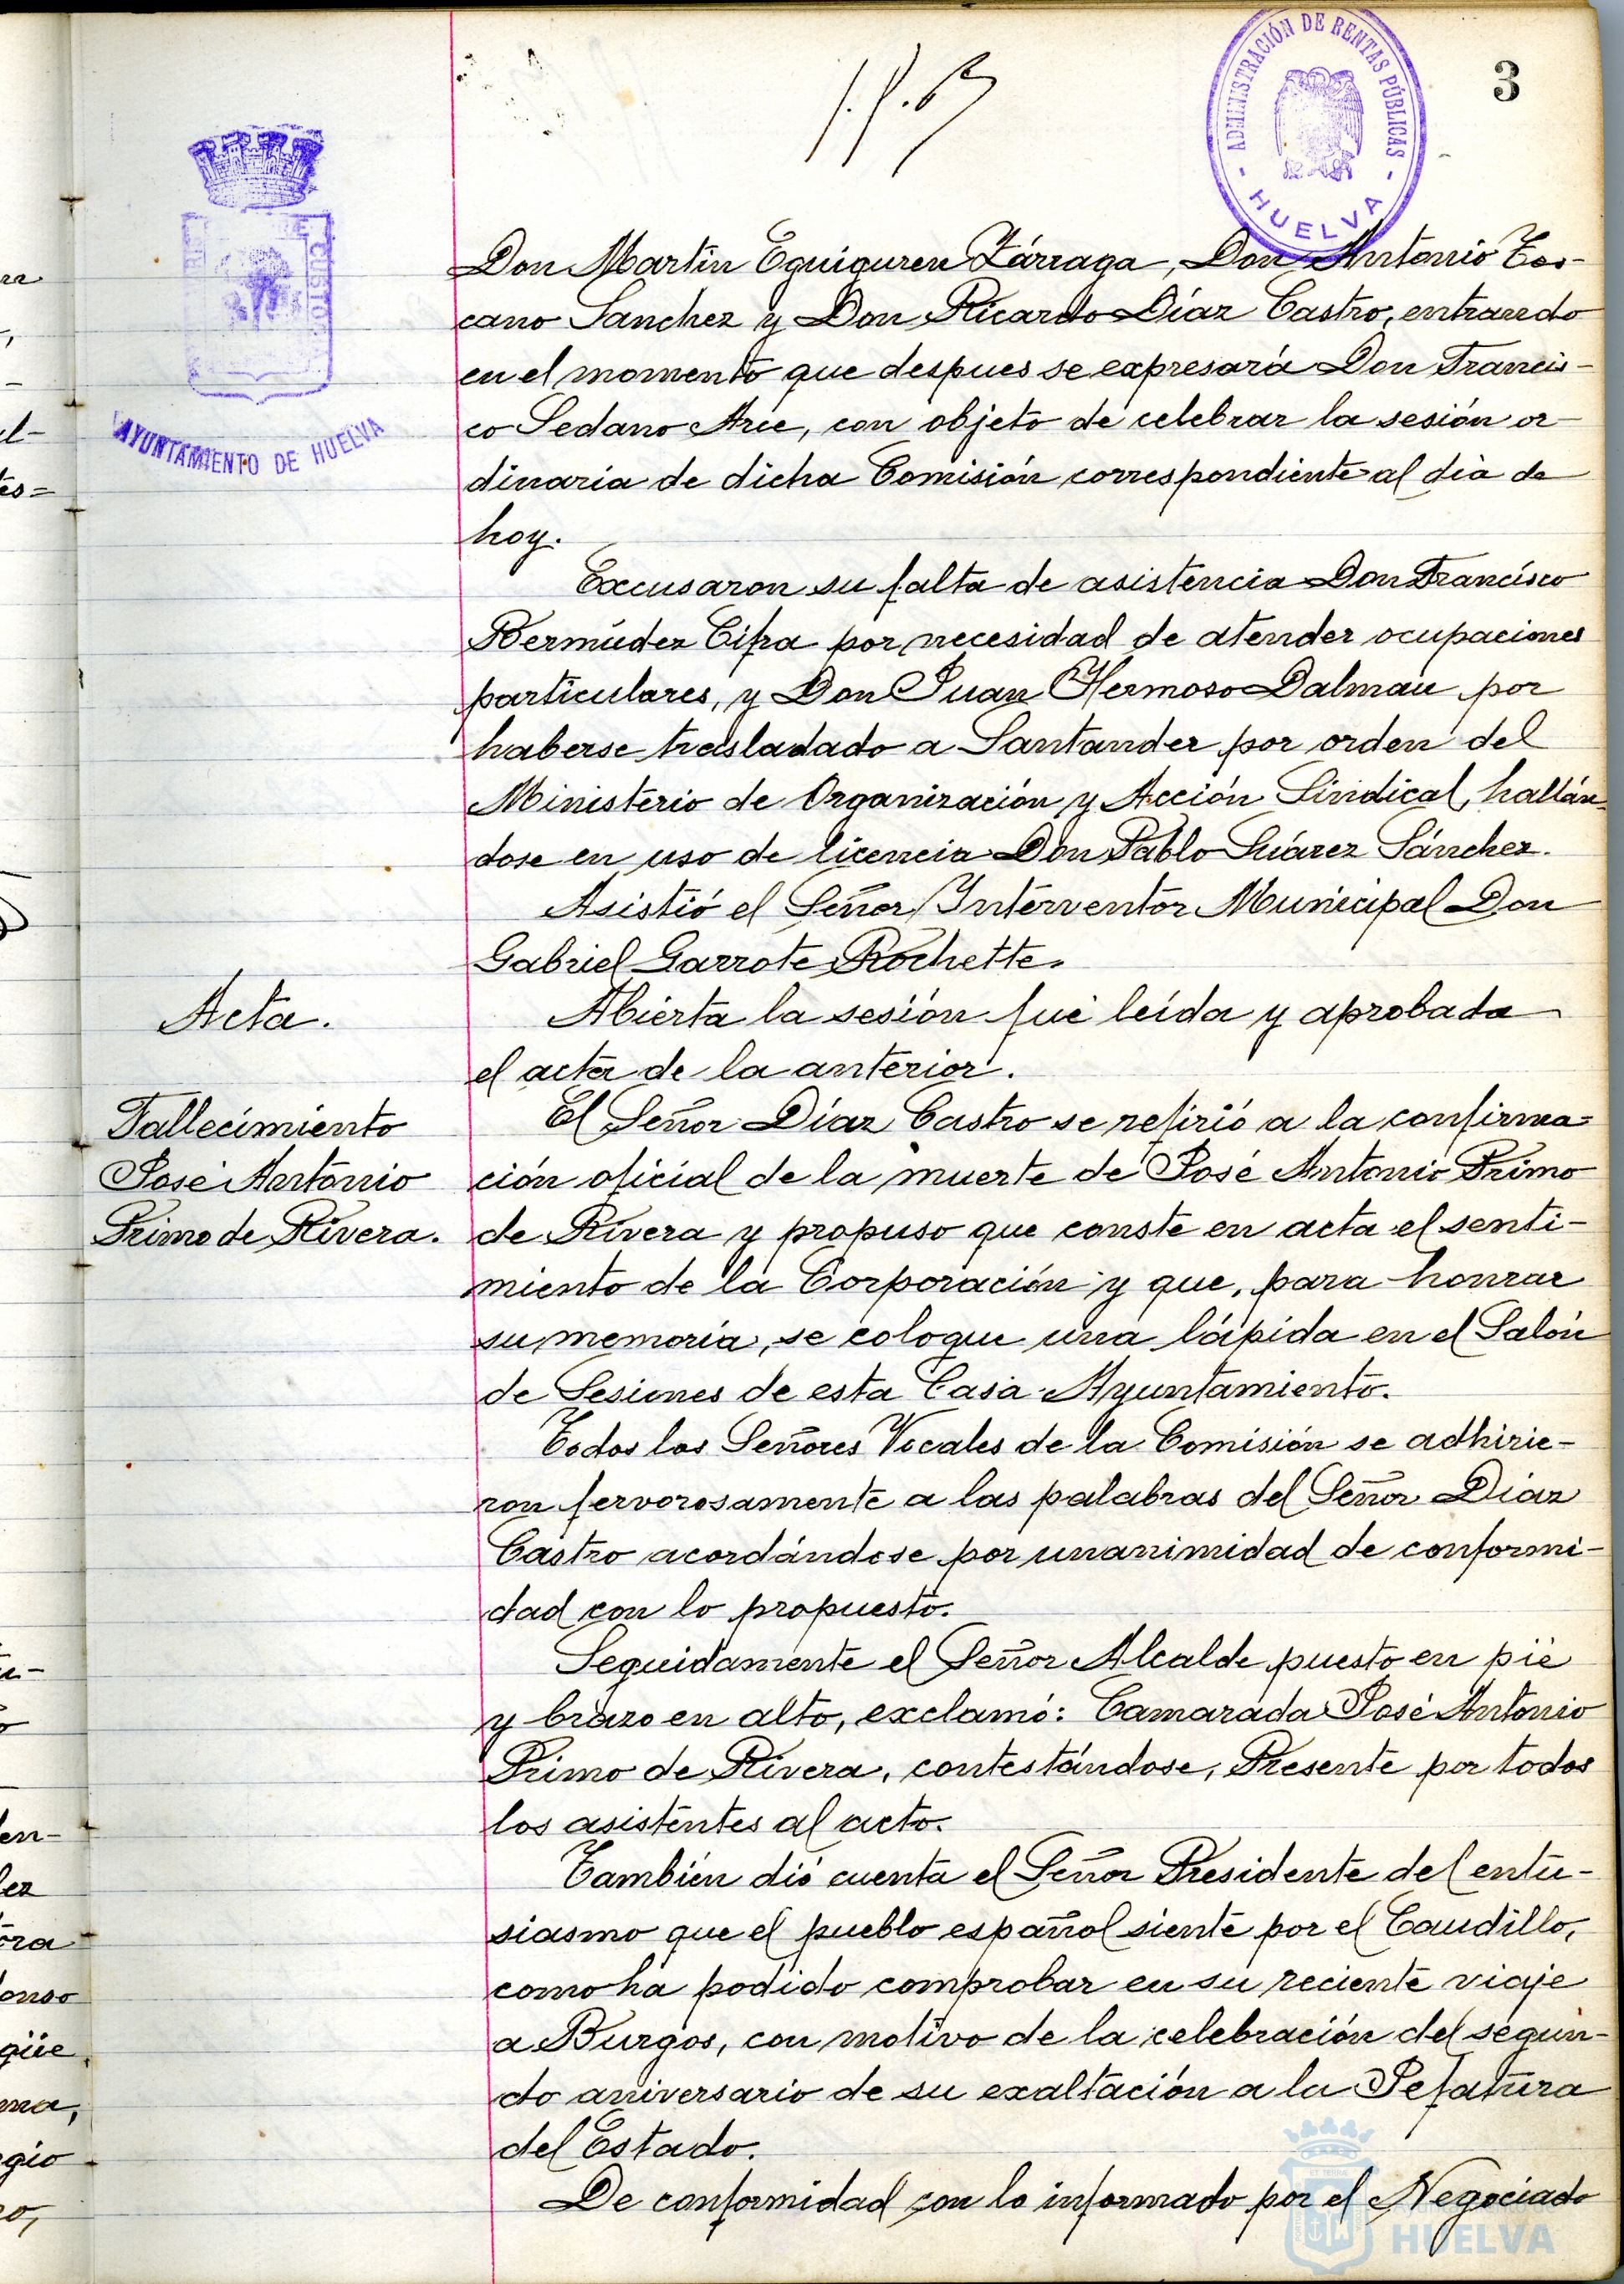 ADMINISTRACIÓN DE RENTAS PÚBLICAS
- HUELVA -
3
CUSTO
AYUNTAMIENTO DE HUELVA
Don Martín Eguiguren Zárraga, Don Antonio Tos-
cano Sanchez y Don Ricardo Díaz Castro, entrando
en el momento que despues se expresará Don Francis-
co Sedano Arce, con objeto de celebrar la sesión or-
dinaria de dicha Comisión correspondiente al día de
hoy.
Excusaron su falta de asistencia Don Francisco
Bermúdez Cifra por necesidad de atender ocupaciones
particulares, y Don Juan Hermoso Dalmau por
haberse trasladado a Santander por orden del
Ministerio de Organización y Acción Sindical, hallán-
dose en uso de licencia Don Pablo Suárez Sánchez.
Asistió el Señor Interventor Municipal Don
Gabriel Garrote Rochette.
Acta.
Abierta la sesión fué leída y aprobada
el acta de la anterior.
Fallecimiento
José Antonio
Primo de Rivera.
El Señor Díaz Castro se refirió a la confirma-
ción oficial de la muerte de José Antonio Primo
de Rivera y propuso que conste en acta el senti-
miento de la Corporación y que, para honrar
su memoria, se coloque una lápida en el Salón
de Sesiones de esta Casa Ayuntamiento.
Todos los Señores Vocales de la Comisión se adhirie-
ron fervorosamente a las palabras del Señor Díaz
Castro acordándose por unanimidad de conformi-
dad con lo propuesto.
Seguidamente el Señor Alcalde puesto en pié
y brazo en alto, exclamó: Camarada José Antonio
Primo de Rivera, contestándose, Presente por todos
los asistentes al acto.
También dió cuenta el Señor Presidente del entu-
siasmo que el pueblo español siente por el Caudillo,
como ha podido comprobar en su reciente viaje
a Burgos, con motivo de la celebración del segun-
do aniversario de su exaltación a la Jefatura
del Estado.
De conformidad con lo informado por el Negociado
HUELVA